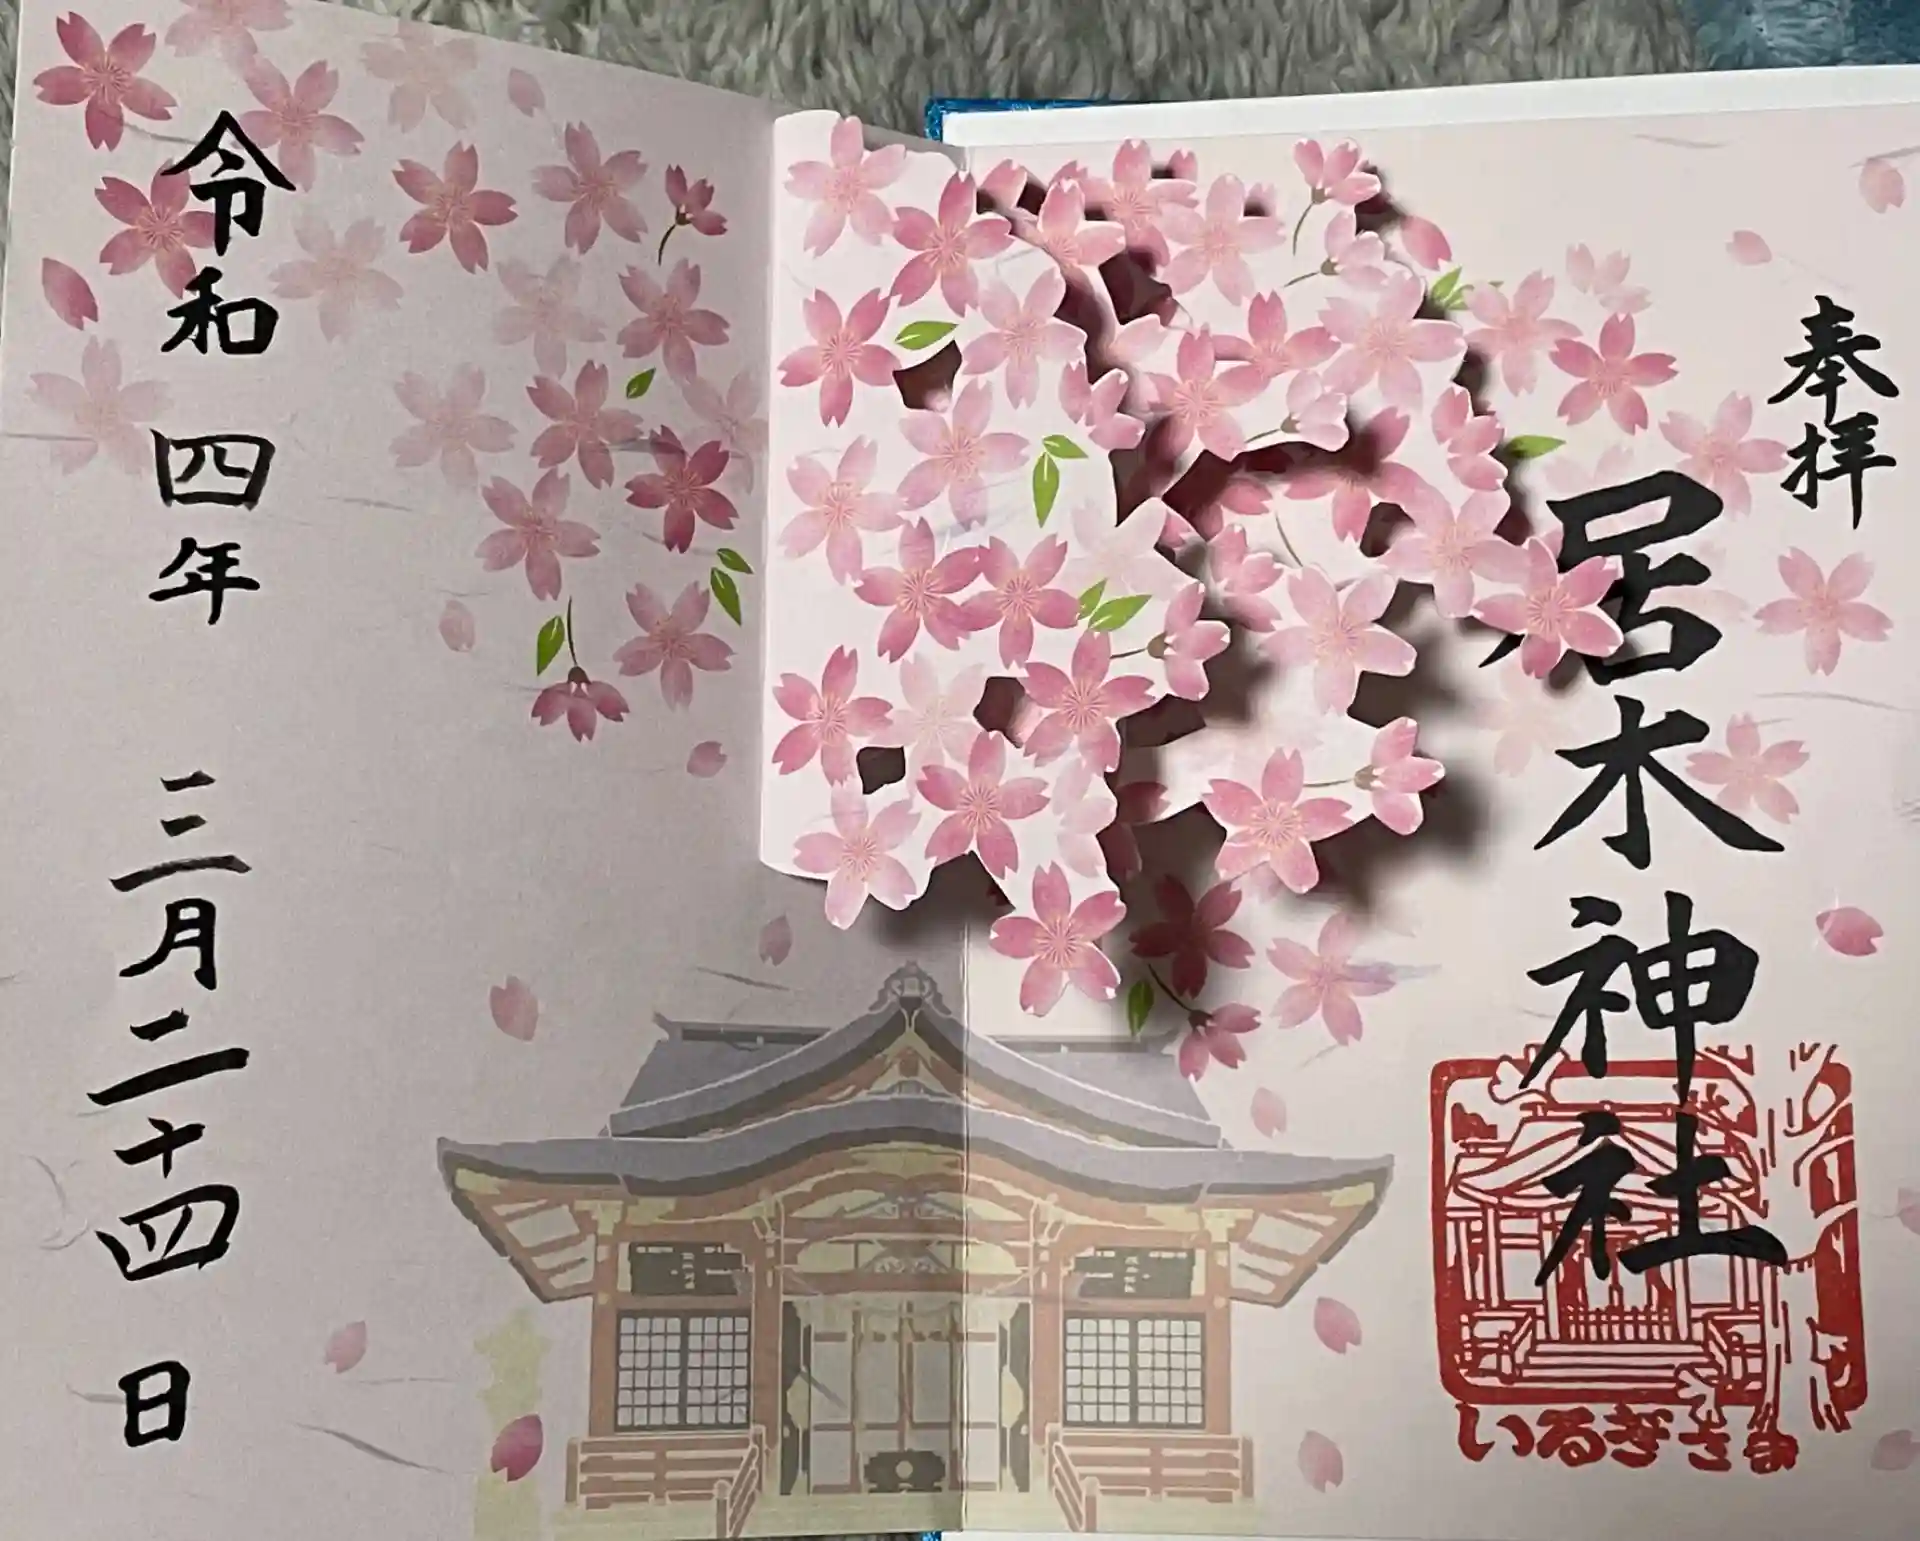 奉拝
居木神社
いるぎさま
令和四年 三月二十四日